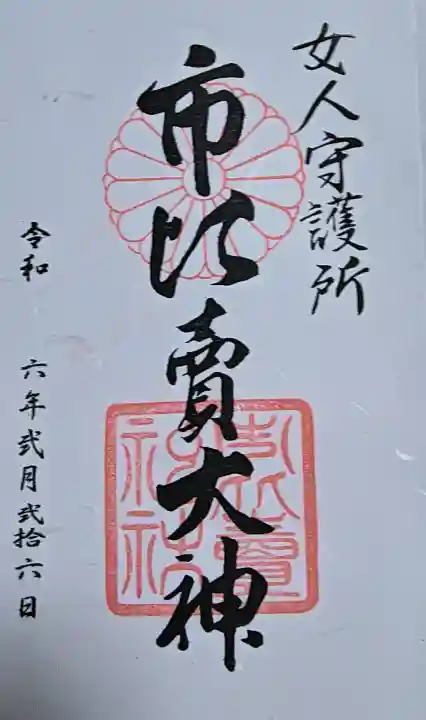 女人守護所
市比賣大神
市比賣神社
令和 六年弐月弐拾六日